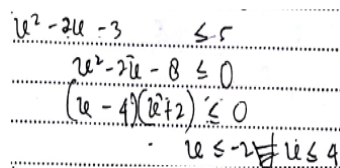 u² - 2u - 3 ≤ 5
u² - 2u - 8 ≤ 0
(u - 4)(u + 2) ≤ 0
u ≤ -2 u ≤ 4